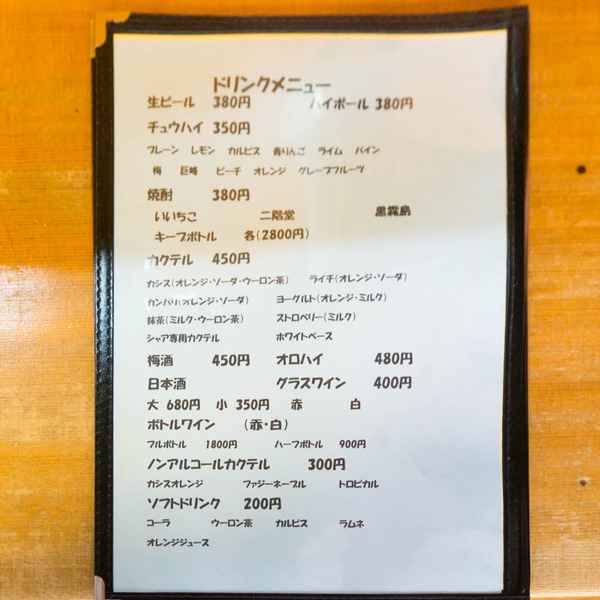 ドリンクメニュー
生ビール 380円 ハイボール 380円
チュウハイ 350円
プレーン レモン カルピス 青りんご ライム パイン
梅 巨峰 ピーチ オレンジ グレープフルーツ
焼酎 380円
いいちこ 二階堂 黒霧島
キープボトル 各(2800円)
カクテル 450円
カシス(オレンジ・ソーダ・ウーロン茶) ライチ(オレンジ・ソーダ)
カンパリ(オレンジ・ソーダ) ヨーグルト(オレンジ・ミルク)
抹茶(ミルク・ウーロン茶) ストロベリー(ミルク)
シャア専用カクテル ホワイトベース
梅酒 450円 オロハイ 480円
日本酒 グラスワイン 400円
大 680円 小 350円 赤 白
ボトルワイン (赤・白)
フルボトル 1800円 ハーフボトル 900円
ノンアルコールカクテル 300円
カシスオレンジ ファジーネーブル トロピカル
ソフトドリンク 200円
コーラ ウーロン茶 カルピス ラムネ
オレンジジュース